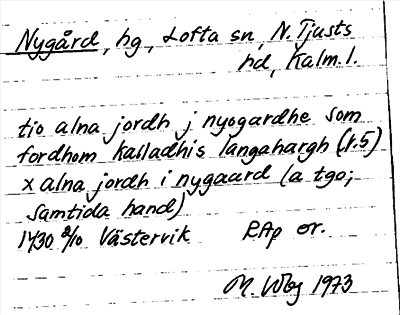 Nygård, hg, Lofta sn, N. Tjusts
hd, Kalm. l.
tio alna jordh j nyogardhe som
fordhom kalladhis langahargh (r.5)
x alna jordh i nygaard (a tgo;
samtida hand)
1430 2/10 Västervik RAp or.
M. Wbg 1973